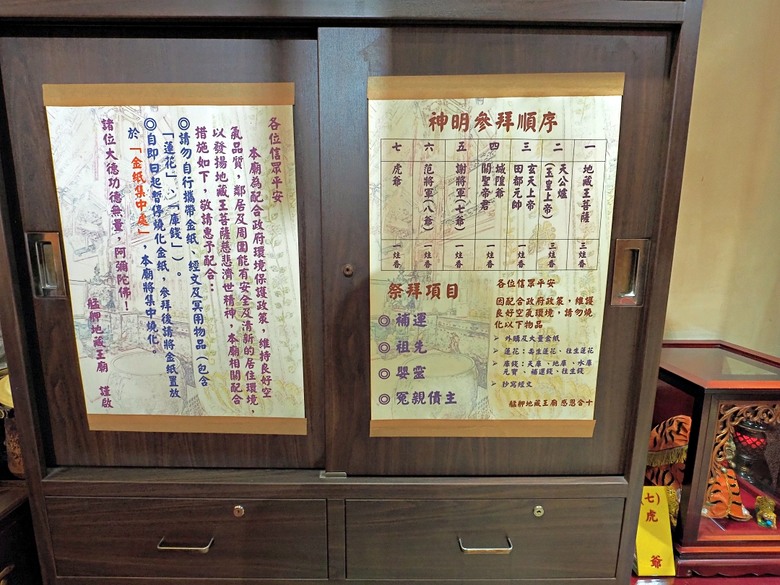 各位信眾平安
本廟為配合政府環境保護政策，維持良好空
氣品質，鄰居及周圍能有安全及清新的居住環境，
以發揚地藏王菩薩慈悲濟世精神，本廟相關配合
措施如下，敬請惠予配合：
◎請勿自行攜帶金紙、經文及冥用物品（包含
「蓮花」、「庫錢」）。
◎自即日起暫停燒化金紙，參拜後請將金紙置放
於「金紙集中處」，本廟將集中燒化。
諸位大德功德無量，阿彌陀佛！
艋舺地藏王廟 謹啟
神明參拜順序
一 地藏王菩薩 三炷香
二 天公爐(玉皇上帝) 三炷香
三 玄天上帝 田都元帥 一炷香
四 城隍爺 關聖帝君 一炷香
五 謝將軍(七爺) 一炷香
六 范將軍(八爺) 一炷香
七 虎爺 一炷香
祭拜項目
◎ 補運
◎ 祖先
◎ 嬰靈
◎ 冤親債主
各位信眾平安
因配合政府政策，維護
良好空氣環境，請勿燒
化以下物品
➢ 外購及大量金紙
➢ 蓮花：壽生蓮花、往生蓮花
➢ 庫錢：天庫、地庫、水庫
元寶、補運錢、往生錢
➢ 抄寫經文
艋舺地藏王廟 感恩合十
七）虎爺